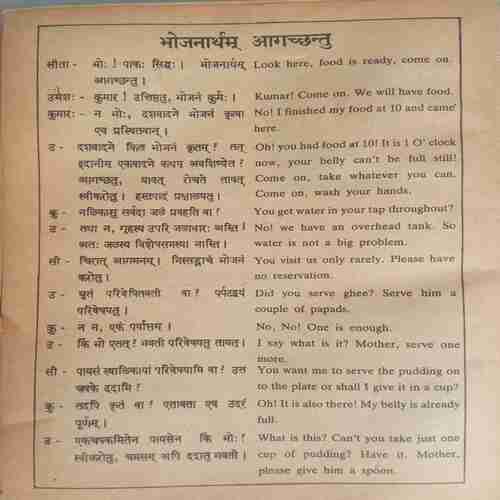 भोजनार्थम् आगच्छन्तु
सीता - भोः! पाकः सिद्धः। भोजनार्थम् Look here, food is ready, come on.
आगच्छन्तु।
उमेशः - कुमार! उत्तिष्ठतु, भोजनं कुर्मः। Kumar! Come on. We will have food.
कुमारः - न भोः, दशवादने भोजनं कृत्वा No! I finished my food at 10 and came
एव प्रस्थितवान्। here.
उ - दशवादने किल भोजनं कृतम्? तत् Oh! you had food at 10! It is 1 O' clock
इदानीम् एकवादने कथम् अवशिष्येत? now, your belly can't be full still!
आगच्छतु, यावत् रोचते तावत् Come on, take whatever you can.
स्वीकरोतु। हस्तपादं प्रक्षालयतु। Come on, wash your hands.
कु - नलिकासु सर्वदा जलं प्रवहति वा? You get water in your tap throughout?
उ - तथा न, गृहस्य उपरि जलाधारः अस्ति। No! we have an overhead tank. So
अतः जलस्य विशेषसमस्या नास्ति। water is not a big problem.
सी - चिरात् आगमनम्। निस्सङ्कोचं भोजनं You visit us only rarely. Please have
करोतु। no reservation.
उ - घृतं परिवेषितवती वा? पर्पटद्वयं Did you serve ghee? Serve him a
परिवेषयतु। couple of papads.
कु - न न, एकं पर्याप्तम्। No, No! One is enough.
उ - किं भो एतत्? भवती परिवेषयतु तावत्। I say what is it? Mother, serve one
more.
सी - पायसं स्थालिकायां परिवेषयामि वा? उत You want me to serve the pudding on
चषके ददामि? to the plate or shall I give it in a cup?
कु - तदपि कृतं वा? एतावता एव उदरं Oh! It is also there! My belly is already
पूर्णम्। full.
उ - एकचषकमितेन पायसेन किं भोः? What is this? Can't you take just one
स्वीकरोतु, चमसम् अपि ददातु भवती। cup of pudding? Have it. Mother,
please give him a spoon.